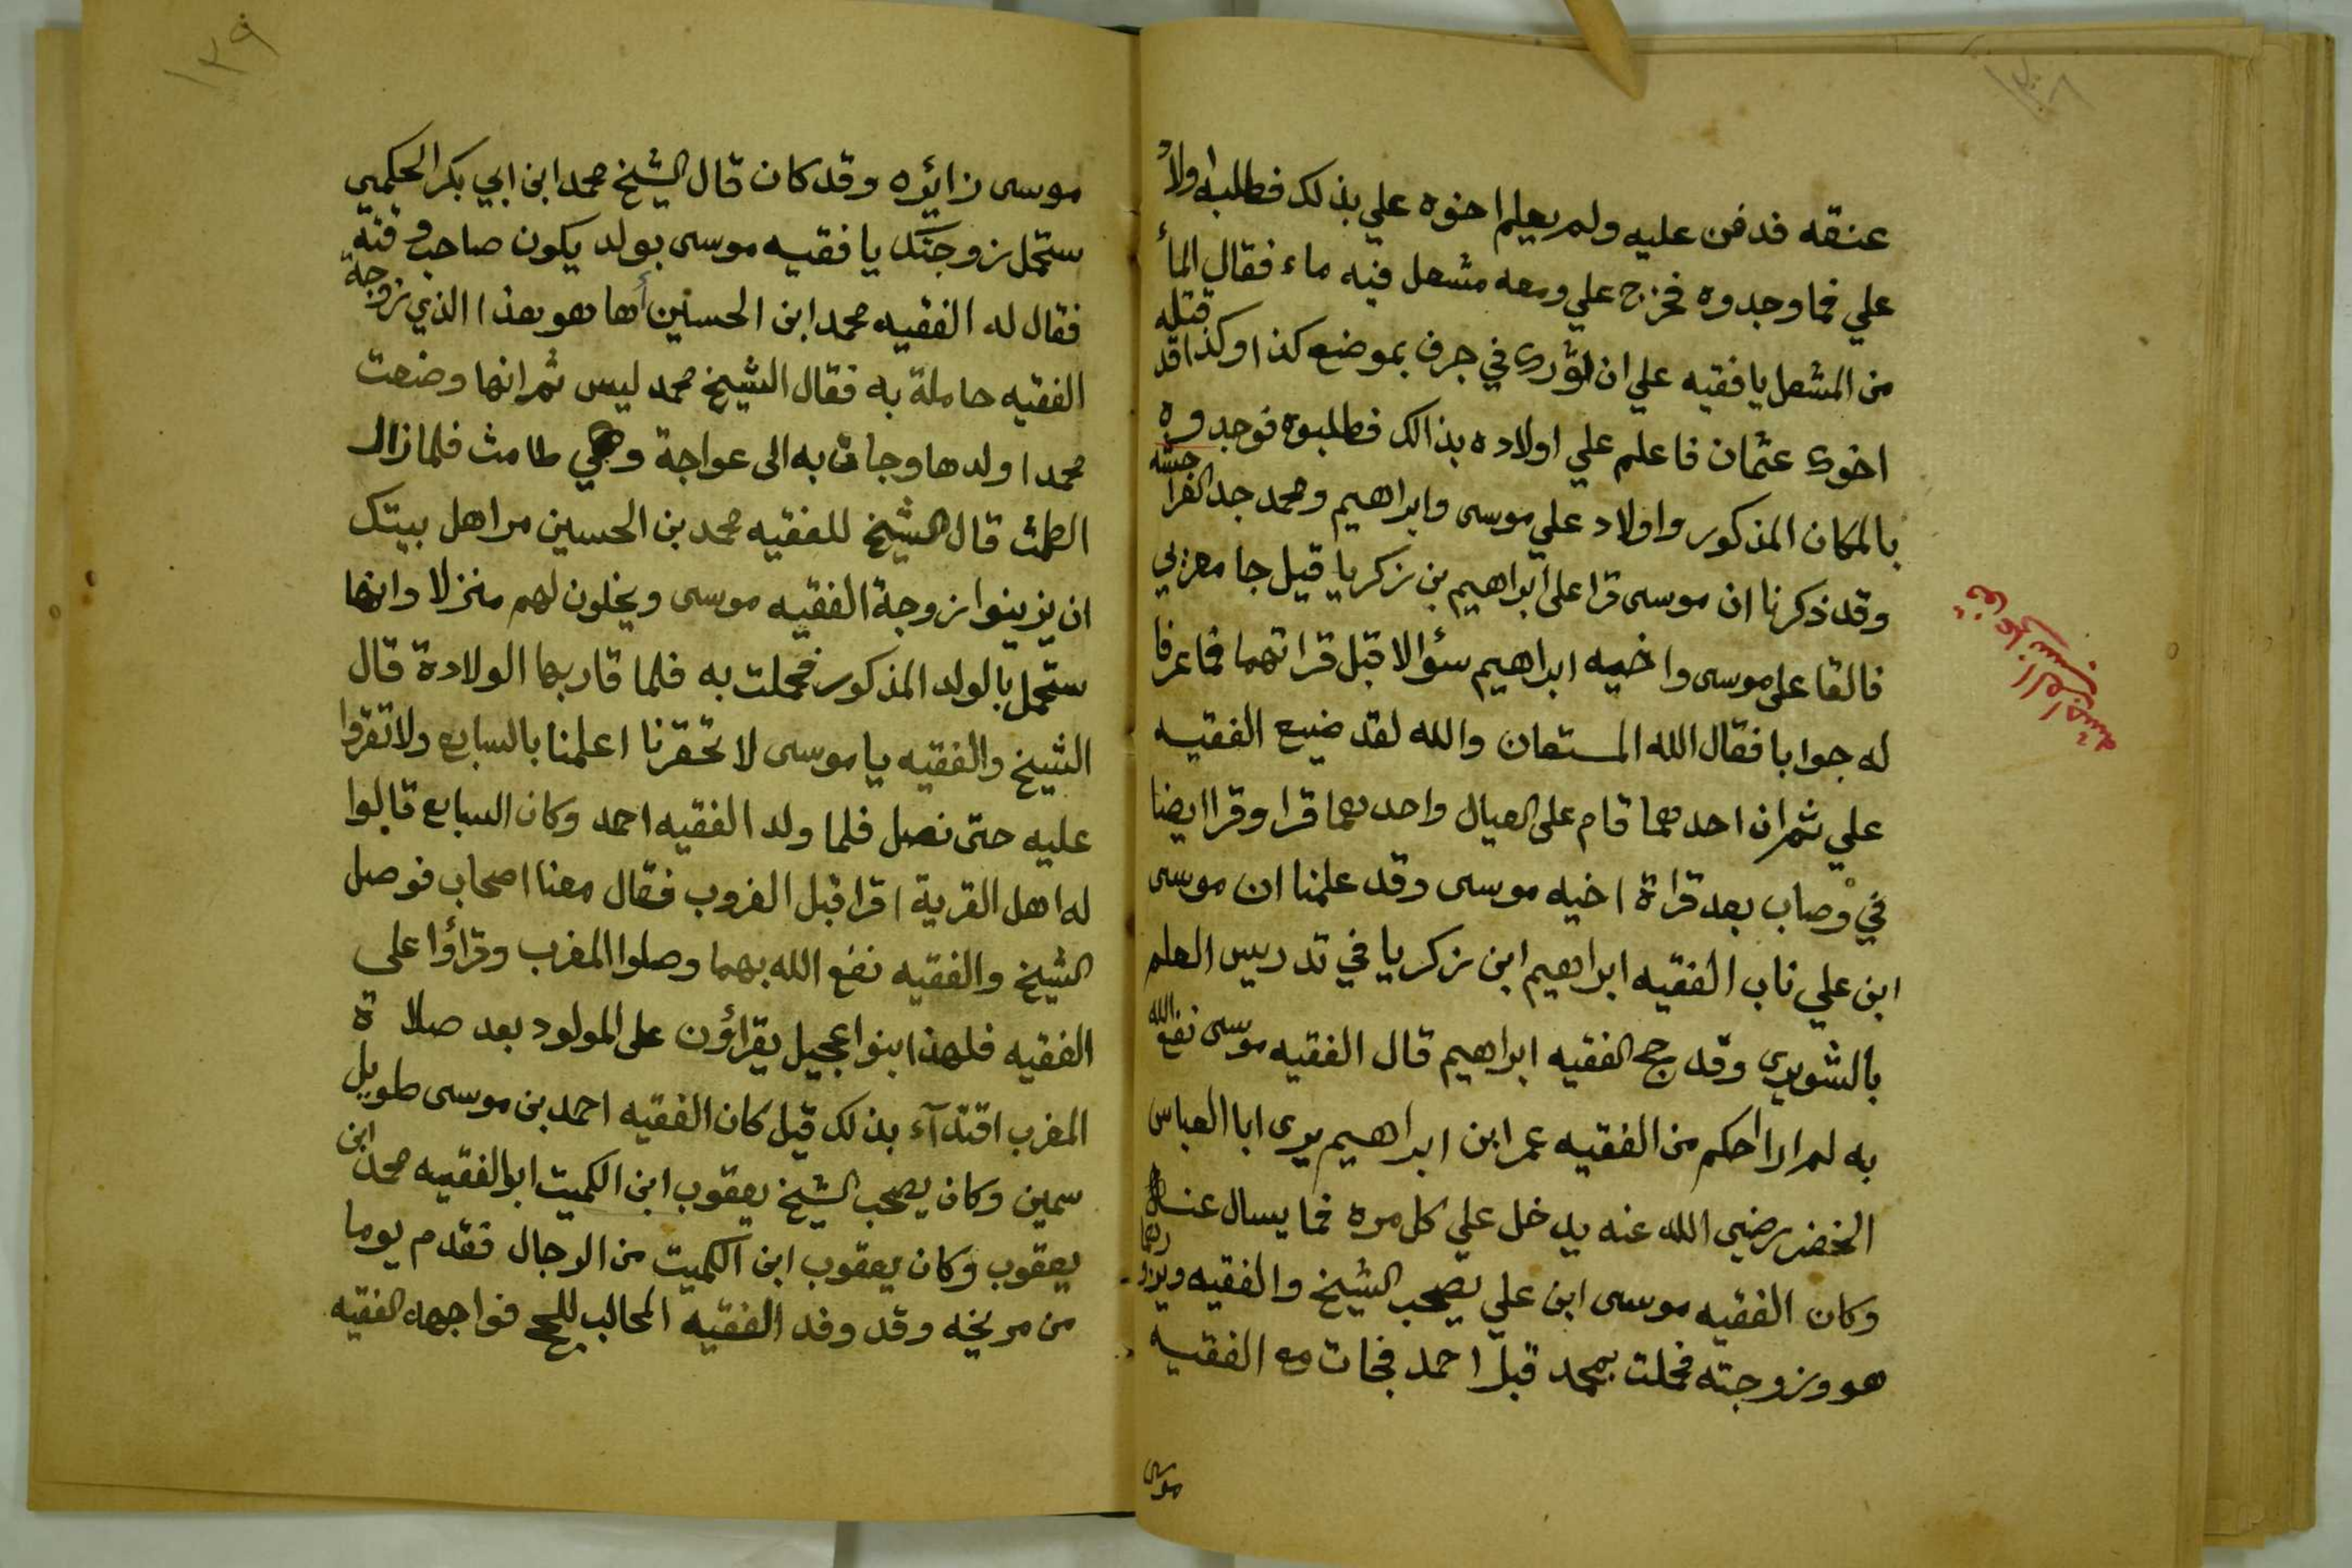 ١٣٨
عنقه فدفن عليه ولم يعلم اخوه علي بذلك فطلبه اولاد
علي فما وجدوه فخرج علي ومعه مشعل فيه ماء فقال المأ
من المشعل يا فقيه علي ان لؤرى في جرف بموضع كذا وكذا قد قتله
اخوى عثمان فاعلم علي اولاده بذالك فطلبوه فوجدوه
بالمكان المذكور واولاد علي موسى وابراهيم ومحمد جد الفرا
وقد ذكرنا ان موسى قرا على ابراهيم بن زكريا قيل جا مغربي
فالقا على موسى واخيه ابراهيم سؤالا قبل قراتهما فما عرفا
له جوابا فقال الله المستعان والله لقد ضيع الفقيه
علي ثم ان احدهما قام على العيال واحدهما قرا وقرا ايضا
في وصاب بعد قراة اخيه موسى وقد علمنا ان موسى
ابن علي ناب الفقيه ابراهيم ابن زكريا في تدريس العلم
بالشويرى وقد حج الفقيه ابراهيم قال الفقيه موسى نفع الله
به لم ارا احكم من الفقيه عمر ابن ابراهيم يرى ابا العباس
الخضر رضي الله عنه يدخل علي كل مره فما يسال عنه
وكان الفقيه موسى ابن علي يصحب الشيخ والفقيه ويزورهما
هو وزوجته فحملت بمحمد قبل احمد فجات مع الفقيه
موسى
١٣٩
موسى زائره وقد كان قال الشيخ محمد ابن ابي بكر الحكمي
ستحمل زوجتك يا فقيه موسى بولد يكون صاحب وقته
فقال له الفقيه محمد ابن الحسين أما هو هذا الذي زوجة
الفقيه حاملة به فقال الشيخ محمد ليس ثم انها وضعت
محمدا ولدها وجات به الى عواجة وهي طامث فلما زال
الطمث قال الشيخ للفقيه محمد بن الحسين مر اهل بيتك
ان يزينوا زوجة الفقيه موسى ويخلون لهم منزلا وانها
ستحمل بالولد المذكور فحملت به فلما قاربها الولادة قال
الشيخ والفقيه يا موسى لا تحقرنا اعلمنا بالسابع ولا تقرؤا
عليه حتى نصل فلما ولد الفقيه احمد وكان السابع قالوا
له اهل القرية اقرا قبل الغروب فقال معنا اصحاب فوصل
الشيخ والفقيه نفع الله بهما وصلوا المغرب وقراؤا علي
الفقيه فلهذا بنوا عجيل يقراؤن على المولود بعد صلاة
المغرب اقتدآء بذلك قيل كان الفقيه احمد بن موسى طويل
سمين وكان يصحب الشيخ يعقوب ابن الكميت ابو الفقيه محمد ابن
يعقوب وكان يعقوب ابن الكميت من الرجال فقدم يوما
من مريخه وقد وفد الفقيه المحالب للحج فواجهه الفقيه